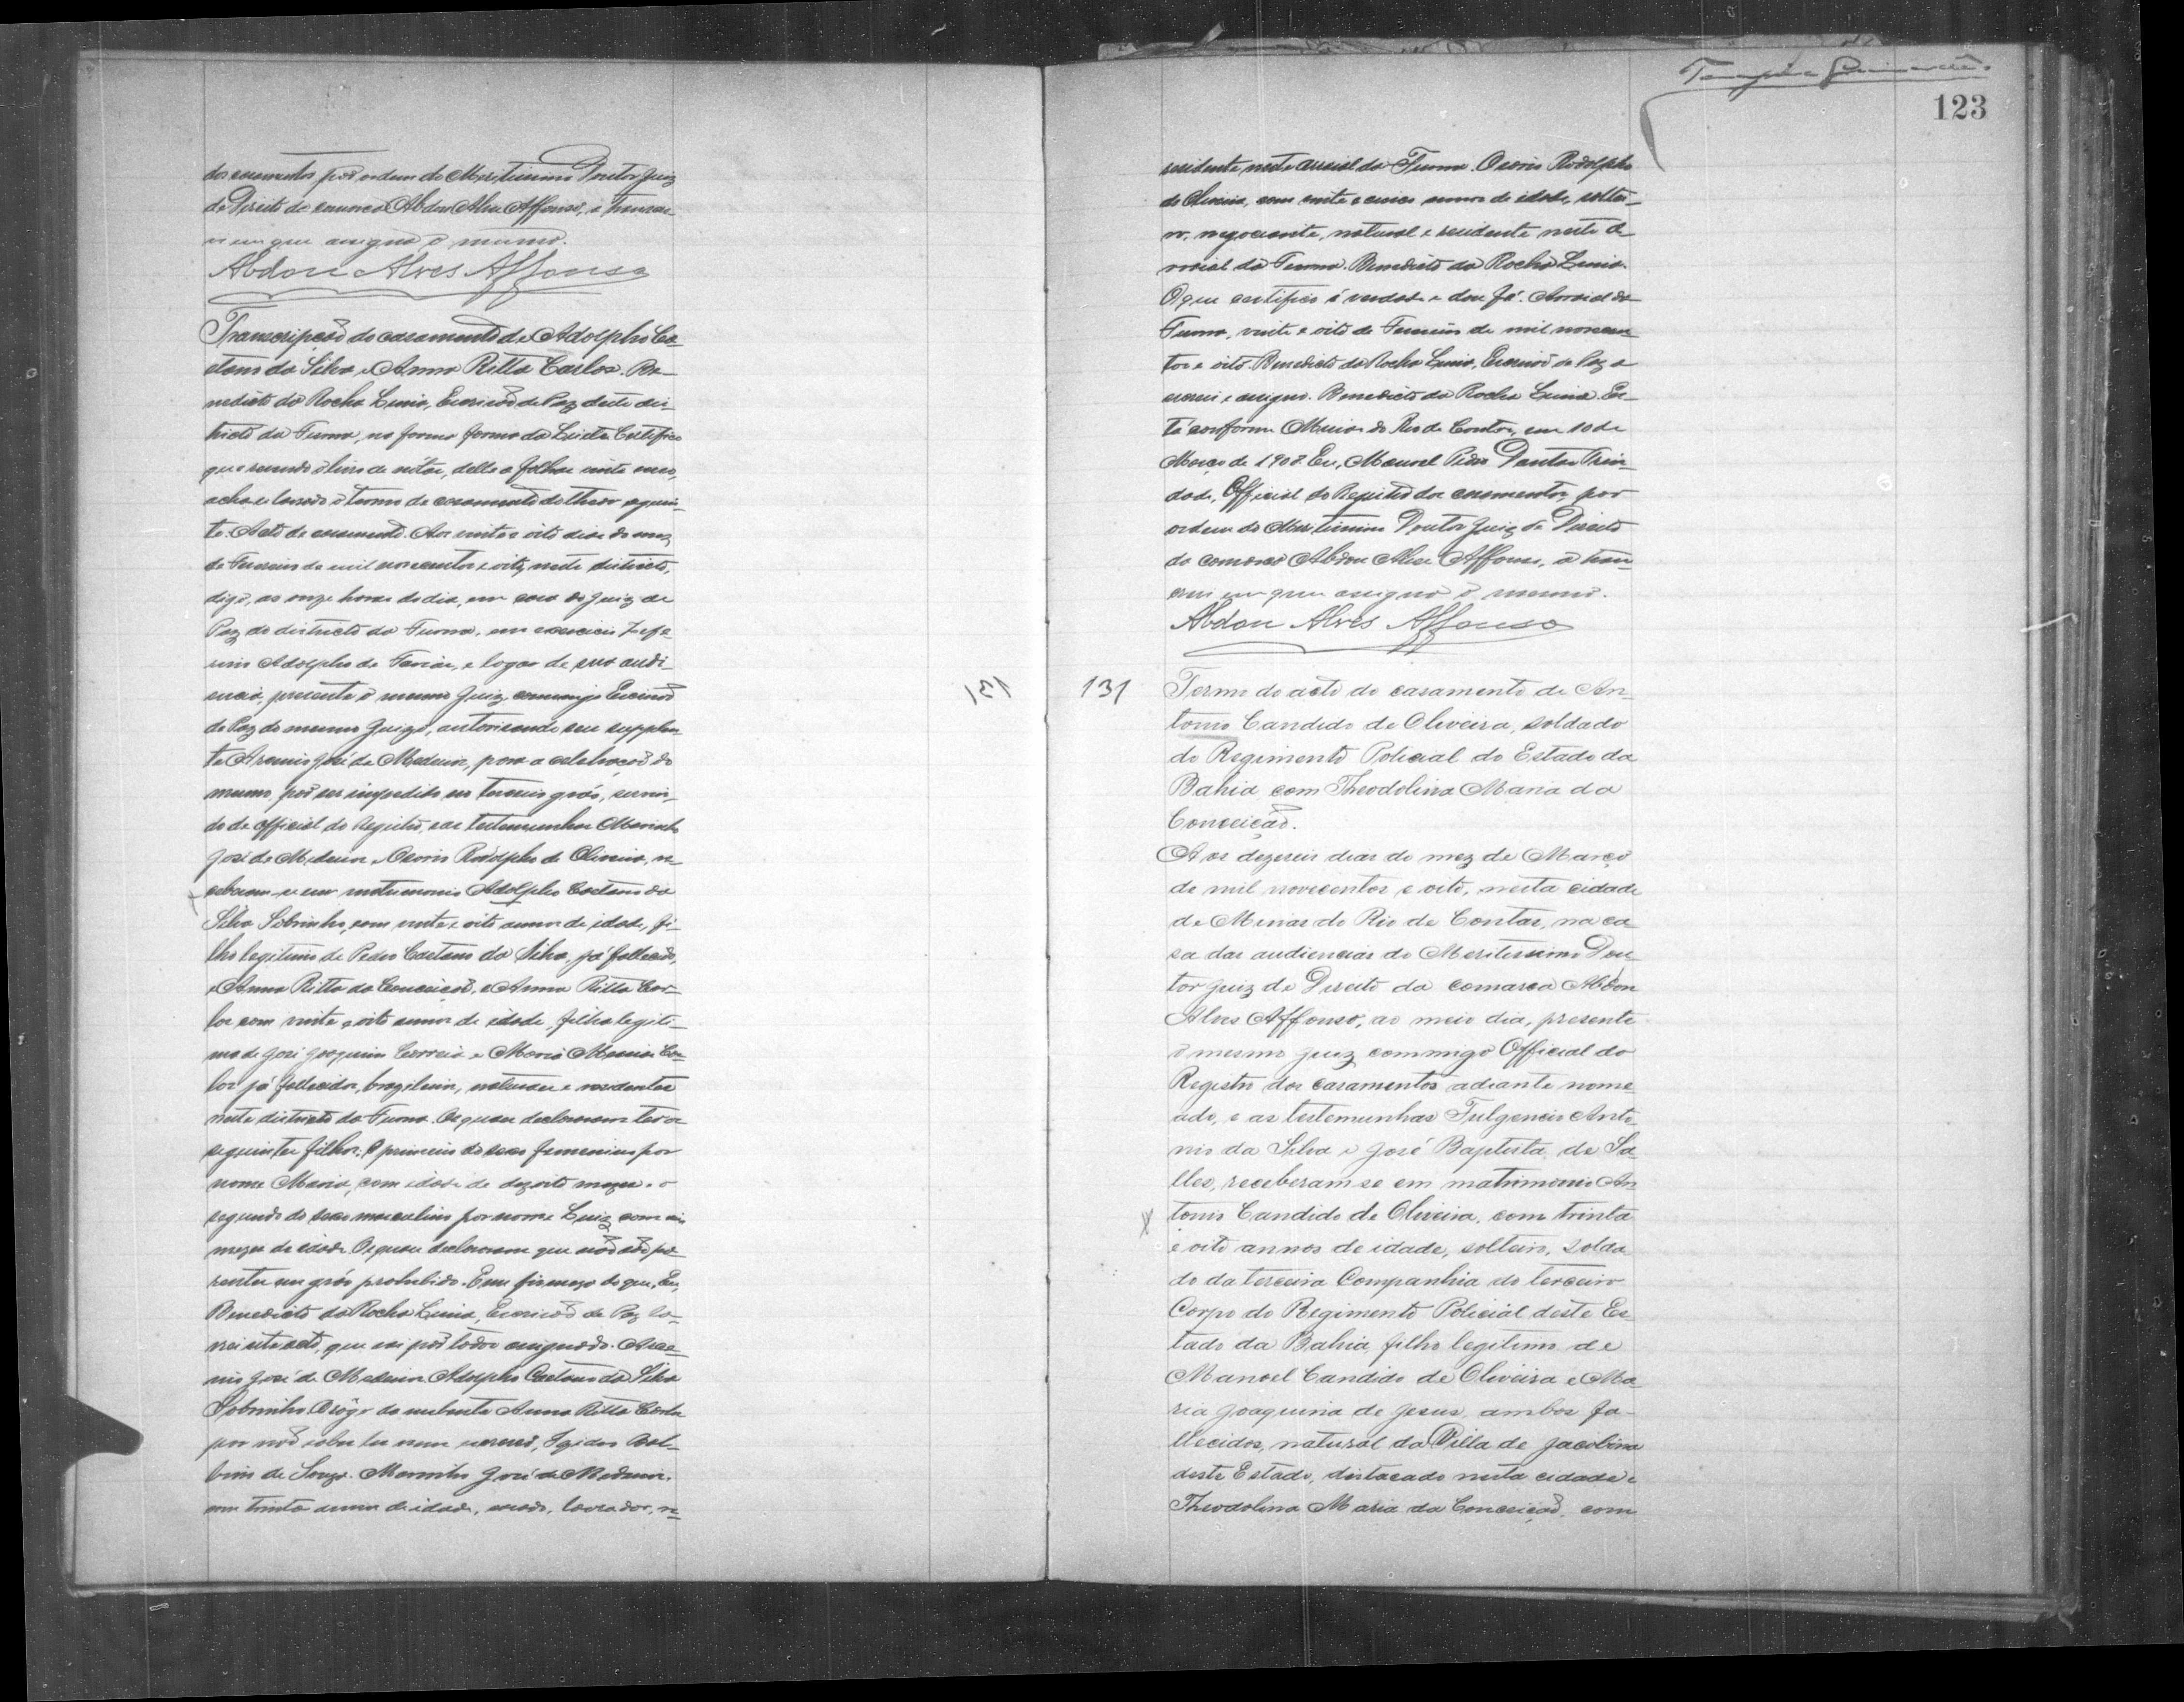 dos casamentos por ordem do Meritissimo Doutor Juiz
de Direito da comarca Abdon Alves Affonso, o transcre-
vi em que assigna o mesmo.
Abdon Alves Affonso
Transcripção do casamento de Adolpho Ca-
etano da Silva e Anna Ritta Carlos. Be-
nedicto da Rocha Lima, Escrivão de Paz deste dis-
tricto da Furna, na forma forma da Lei etc. Certifico
que revendo o livro de notas, delle a folhas vinte
acha-se lavrado o termo de casamento do theor seguin-
te. Acto de casamento. Aos vinte e oito dias do mez
de Fevereiro de mil novecentos e oito, neste districto,
digo, as onze horas do dia, em casa do Juiz de
Paz do districto da Furna, em exercicio Zefe-
rino Adolpho de Farias, e logar de suas audi-
encia, presente o mesmo Juiz, commigo Escrivão
de Paz do mesmo Juizo, autorisando seu supplen-
te Arsenio José de Medeiros, para a celebração do
mesmo, por ser impedido no terceiro gráo, servin-
do de official do Registro, e as testemunhas Marinho
José de Medeiros e Osorio Rodolpho de Oliveira, re-
ceberam-se em matrimonio Adolpho Caetano da
Silva Sobrinho, com vinte e oito annos de idade, fi-
lho legitimo de Pedro Caetano da Silva, já fallecido,
e Anna Ritta da Conceição, e Anna Ritta Car-
los com vinte e oito annos de idade filha legiti-
ma de José Joaquim Correia e Maria Car-
los já fallecidos, brazileiros, naturaes e residentes
neste districto da Furna. Os quaes declararam ter os
seguintes filhos: O primeiro do sexo femenino por
nome Maria, com idade de dezoito mezes. o
segundo do sexo masculino por nome Luiz com seis
mezes de idade. Os quaes declararam que não são pa-
rentes em gráo prohibido. E em firmeza do que, Eu,
Benedicto da Rocha Lima, Escrivão de Paz la-
vrei este acto, que vai por todos assignado. Arse-
nio José de Medeiros. Adolpho Caetano da Silva
Sobrinho. A rogo da nubente Anna Ritta Carlos
por não saber ler nem escrever, Bal-
bino de Souza. Marinho José de Medeiros.
com trinta annos de idade, casado, lavrador, re-
131
Guimarães
123
residente neste arraial da Furna. Osorio Rodolpho
de Oliveira, com vinte e cinco annos de idade, soltei-
ro, negociante, natural e residente neste ar-
raial da Furna. Benedicto da Rocha Lima.
O que certifico é verdade e dou fé. Arraial da
Furna, vinte e oito de Fevereiro de mil novecen-
tos e oito. Benedicto da Rocha Lima, Escrivão de Paz o
escrevi e assigno. Benedicto da Rocha Lima. Es-
tá conforme. Minas do Rio de Contas, em 10 de
Março de 1908. Eu, Manoel Pedro Dantas Trin-
dade, Official do Registro dos casamentos, por
ordem do Meritissimo Doutor Juiz de Direito
da comarca Abdon Alves Affonso, o trans-
crevi em que assigna o mesmo.
Abdon Alves Affonso
131
Termo do acto do casamento de An-
tonio Candido de Oliveira, soldado
do Regimento Policial do Estado da
Bahia com Theodolina Maria da
Conceição.
Aos dezeseis dias do mez de Março
de mil novecentos e oito, nesta cidade
de Minas do Rio de Contas, na ca-
sa das audiencias do Meritissimo Dou-
tor Juiz de Direito da comarca Abdon
Alves Affonso, ao meio dia, presente
o mesmo Juiz commigo Official do
Registro dos casamentos adiante nome-
ado, e as testemunhas Fulgencio Anto-
nio da Silva e José Baptista de Sa-
lles, receberam-se em matrimonio An-
tonio Candido de Oliveira, com trinta
e oito annos de idade, solteiro, solda-
do da terceira Companhia do terceiro
Corpo do Regimento Policial deste Es-
tado da Bahia, filho legitimo de
Manoel Candido de Oliveira e Ma-
ria Joaquina de Jesus, ambos fa-
llecidos, natural da Villa de Jacobina
deste Estado, distacado nesta cidade e
Theodolina Maria da Conceição, com